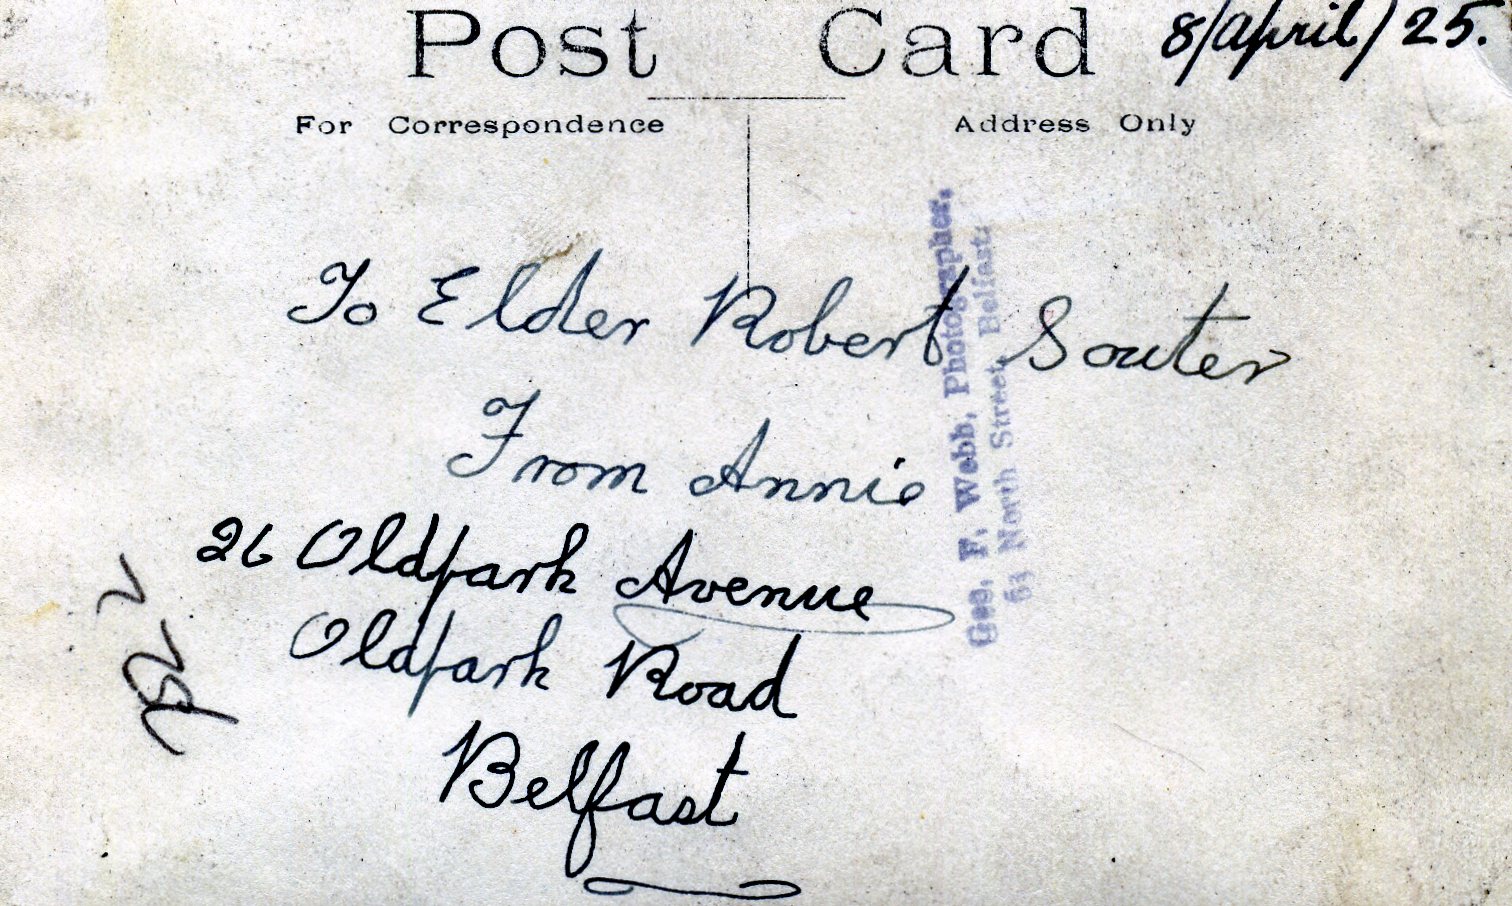 Post Card 8/April/25.
For Correspondence Address Only
To Elder Robert Souter
From Annie
26 Oldpark Avenue
Oldpark Road
Belfast
Geo. F. Webb, Photographer,
63 North Street, Belfast.